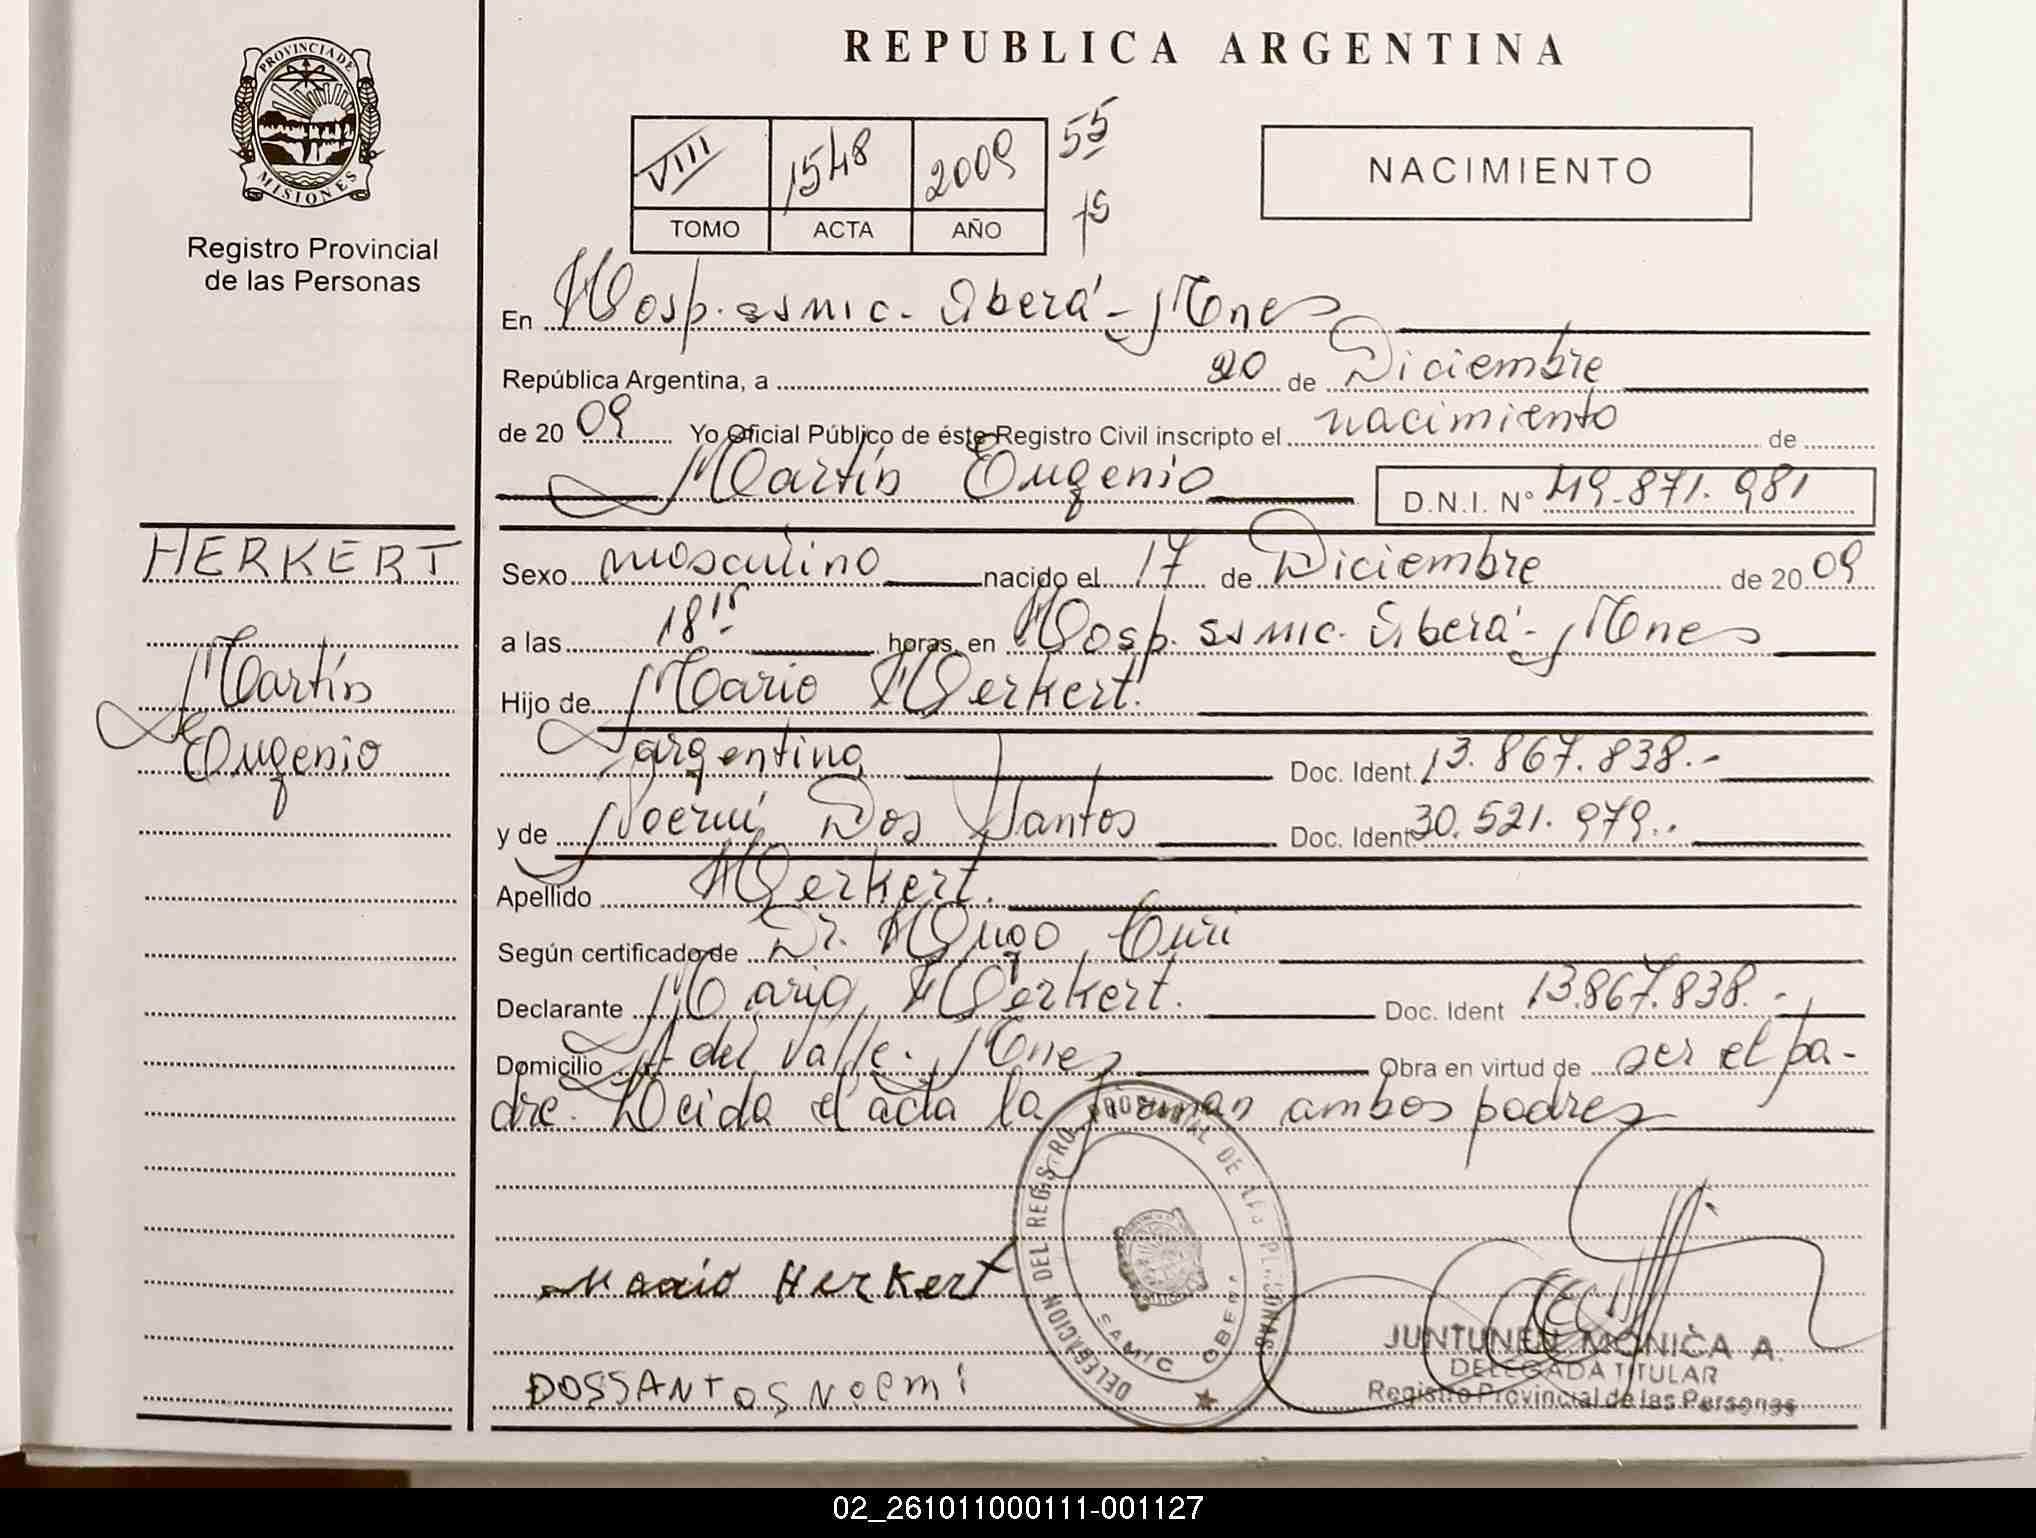 REPUBLICA ARGENTINA
PROVINCIA DE
MISIONES
Registro Provincial
de las Personas
VIII 1548 2009 55
TOMO ACTA AÑO
NACIMIENTO
En Hosp. ssmic. Oberá - Mnes
República Argentina, a 20 de Diciembre
de 2009 Yo Oficial Público de éste Registro Civil inscripto el nacimiento de
Martín Eugenio D.N.I. Nº 49.871.981
HERKERT
Martín
Eugenio
Sexo masculino nacido el 17 de Diciembre de 2009
a las 18 15 horas, en Hosp. ssmic. Oberá - Mnes
Hijo de Mario Herkert.
argentino Doc. Ident. 13.867.838.-
y de Noemí Dos Santos Doc. Ident 30.521.979..
Apellido Herkert.
Según certificado de Dr. Hugo Curi
Declarante Mario Herkert. Doc. Ident 13.867.838.-
Domicilio del Valle. Mnes Obra en virtud de ser el pa-
dre. Leida el acta la firman ambos padres
DELEGACION DEL REGISTRO PROVINCIAL DE LAS PERSONAS
SAMIC OBERA
Mario Herkert
DOSSANTOS Noemi
JUNTUNEN MONICA A.
DELEGADA TITULAR
Registro Provincial de las Personas
02_261011000111-001127